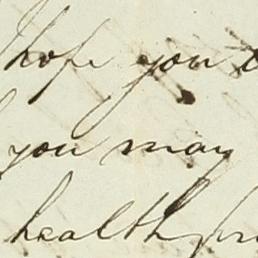 hope you
you may
health